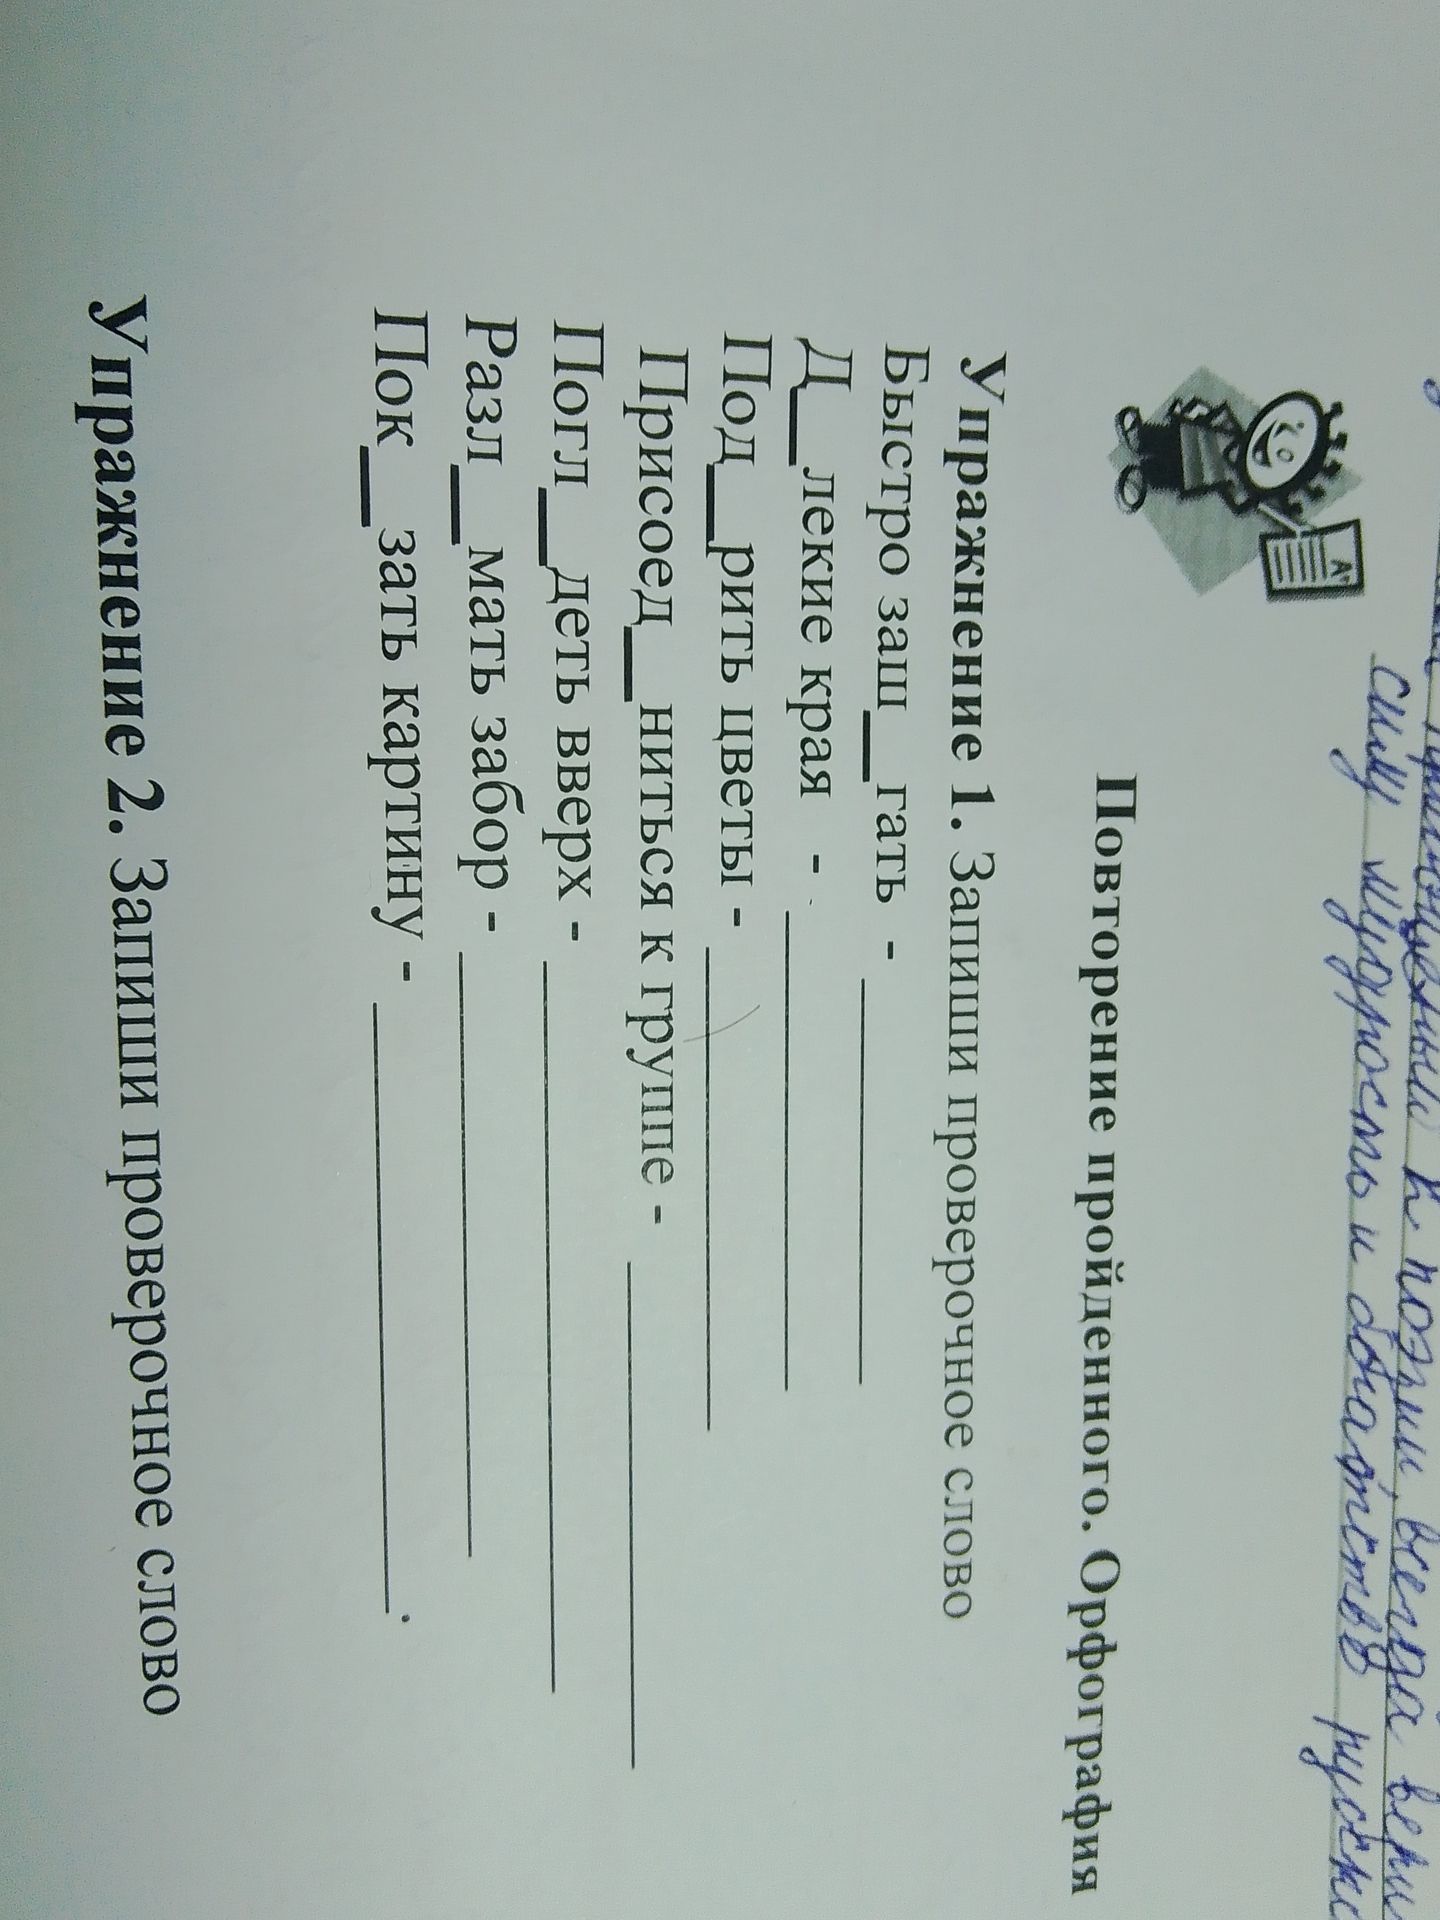 силу мудрость и богатство
Повторение пройденного. Орфография
Упражнение 1. Запиши проверочное слово
Быстро заш__гать - ____________
Д__лекие края - ____________
Под__рить цветы - ____________
Присоед__ниться к группе - ____________
Погл__деть вверх - ____________
Разл__мать забор - ____________
Пок__зать картину - ____________.
Упражнение 2. Запиши проверочное слово